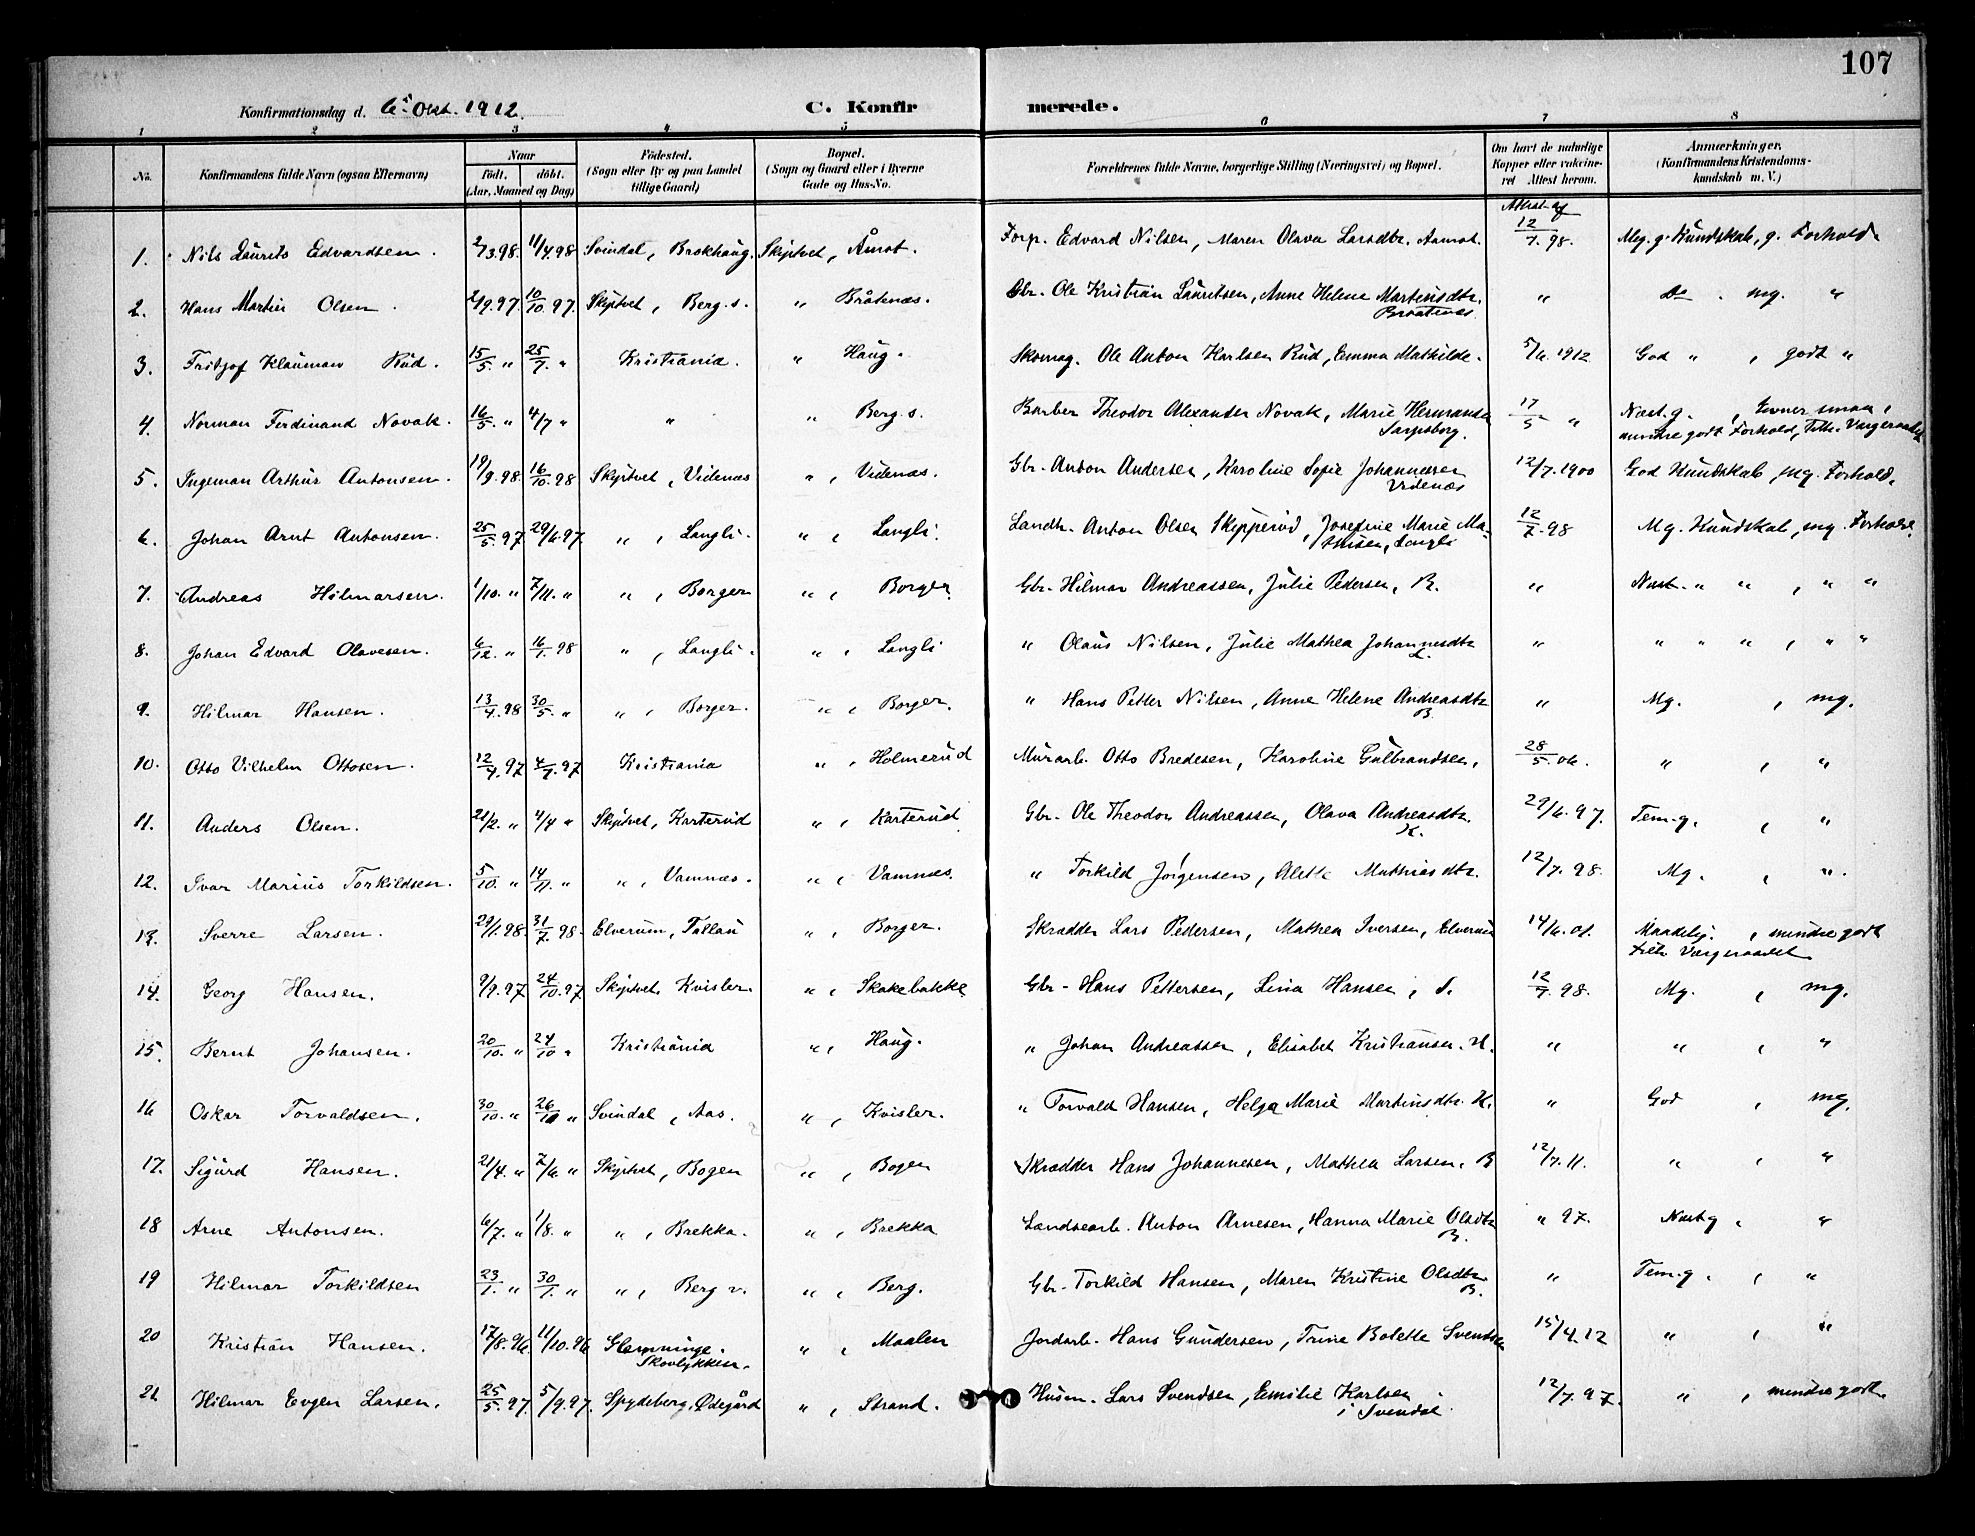 107
Konfirmationsdag d. 6te Okt. 1912. C. Konfirmerede.
1 2 3 4 5 6 7 8
No. Konfirmandens fulde Navn (ogsaa Efternavn) Naar födt. döbt. (Aar, Maaned og Dag) Födested. (Sogn eller By og paa Landet tillige Gaard) Bopæl. (Sogn og Gaard eller i Byerne Gade og Hus-No. Forældrenes fulde Navne, borgerlige Stilling (Næringsvei) og Bopæl. Om havt de naturlige Kopper eller vaccineret Attest herom. Anmærkninger. (Konfirmandens Kristendomskundskab m. V.)
Attest af
1. Nils Laurits Edvardsen. 2/3.98. 11/4.98 Svindal, Brokhaug. Skiptvet, Åmot. Forp. Edvard Nilsen, Maren Olava Larsdtr. Aamot. 12/7.98. Meg. g. Kundskab, g. Forhold.
2. Hans Martin Olsen. 2/9.97. 10/10.97. Skiptvet, Berg. s. " Bråtenæs. Gbr. Ole Kristian Lauritsen, Anne Helene Martinsdtr. Braatenæs. " Do. mg. "
3. Fritjof Klauman Rud. 15/5. " 25/7. " Kristiania. " Haug. Skomag. Ole Anton Karlsen Rud, Emma Mathilde. 5/6.1912 God ", godt "
4. Norman Ferdinand Novak. 16/5. " 4/7 " " " Berg. s. Barber Theodor Alexander Novak, Marie Hermansen Sarpsborg. 17/5 " Næst. g., Evner smaa, mindre godt Forhold, Tilh. Værgeraadet
5. Ingeman Arthur Antonsen. 19/9.98. 16/10.98 Skiptvet, Videnæs ", Videnæs. Gbr. Anton Andersen, Karoline Sofie Johannesen Videnæs 12/7.1900 God Kundskab, mg. Forhold.
6. Johan Arnt Antonsen. 25/5.97 29/6.97. ", Langli. ", Langli. Landh. Anton Olsen Skipperud, Josefine Marie Mathisen, Langli 12/7.98 Mg. Kundskab, mg. Forhold.
7. Andreas Hilmarsen. 1/10. " 7/11. " ", Borger ", Borger. Gbr. Hilmar Andreassen, Julie Pedersen, B. " Næst. " ", " "
8. Johan Edvard Olavesen. 6/12. " 16/1.98 ", Langli. ", Langli " Olaus Nilsen, Julie Mathea Johannesdtr L. " " " ", " "
9. Hilmar Hansen. 13/4.98 30/5. " ", Borger. ", Borger. " Hans Petter Nilsen, Anne Helene Andreasdtr B. " Mg., mg.
10. Otto Vilhelm Ottosen. 12/4.97 4/7.97 Kristiania ", Holmerud Murarb. Otto Bredesen, Karoline Gulbrandsen, 28/5.06. ", "
11. Anders Olsen. 21/2. " 4/4 " Skiptvet, Karterud ", Karterud Gbr. Ole Theodor Andreassen, Olava Andreasdtr. K. 29/6.97. Tem. g., "
12. Ivar Marius Torkildsen. 5/10. " 14/11. " ", Vamnæs. ", Vamnæs. " Torkild Jørgensen, Alette Mathiasdtr. 12/7.98. Mg., ".
13. Sverre Larsen. 29/1.98. 31/7.98. Elverum, Tallau ", Borger. Skrædder Lars Pedersen, Mathea Iversen, Elverum 14/6.01. Maadelig., mindre godt Tilh. Værgeraadet.
14. Georg Hansen. 9/9.97 24/10.97 Skiptvet, Kvisler. ", Skakebakke Gbr. Hans Pettersen, Lina Hansen, S. 12/7.98. Mg., mg.
15. Bernt Johansen. 20/10. " 24/10 " Kristiania ", Haug. " Johan Andreassen, Elisabet Kristiansen. H. " ", "
16 Oskar Torvaldsen. 30/10. " 26/10 " Svindal, Aas. ", Kvisler. " Torvald Hansen, Helga Marie Martinsdtr. K. " God, mg.
17. Sigurd Hansen. 21/4. " 7/6 " Skiptvet, Bogen ", Bogen Skrædder Hans Johannesen, Mathea Larsen, B 12/7.11. ", "
18 Arne Antonsen. 6/7. " 1/8. " ", Brekka. ", Brekka Landsearb. Anton Arnesen, Hanna Marie Olsdtr B. " 97. Næst g, "
19 Hilmar Torkildsen 23/1. " 30/1. " ", Berg v. ", Berg. Gbr. Torkild Hansen, Maren Kristine Olsdtr B. " Tem. g., "
20 Kristian Hansen. 17/8.96. 11/10.96 Glemminge. Skovlykken. ", Maalen Jordarb. Hans Gundersen, Trine Bolette Svendsen 15/4.12 ", "
21 Hilmar Evgen Larsen. 25/5.97. 5/9.97. Spydeberg, Ødegård ", Strand. Husm. Lars Svendsen, Emilie Karlsen i Svendal. 12/7.97. ", mindre godt.